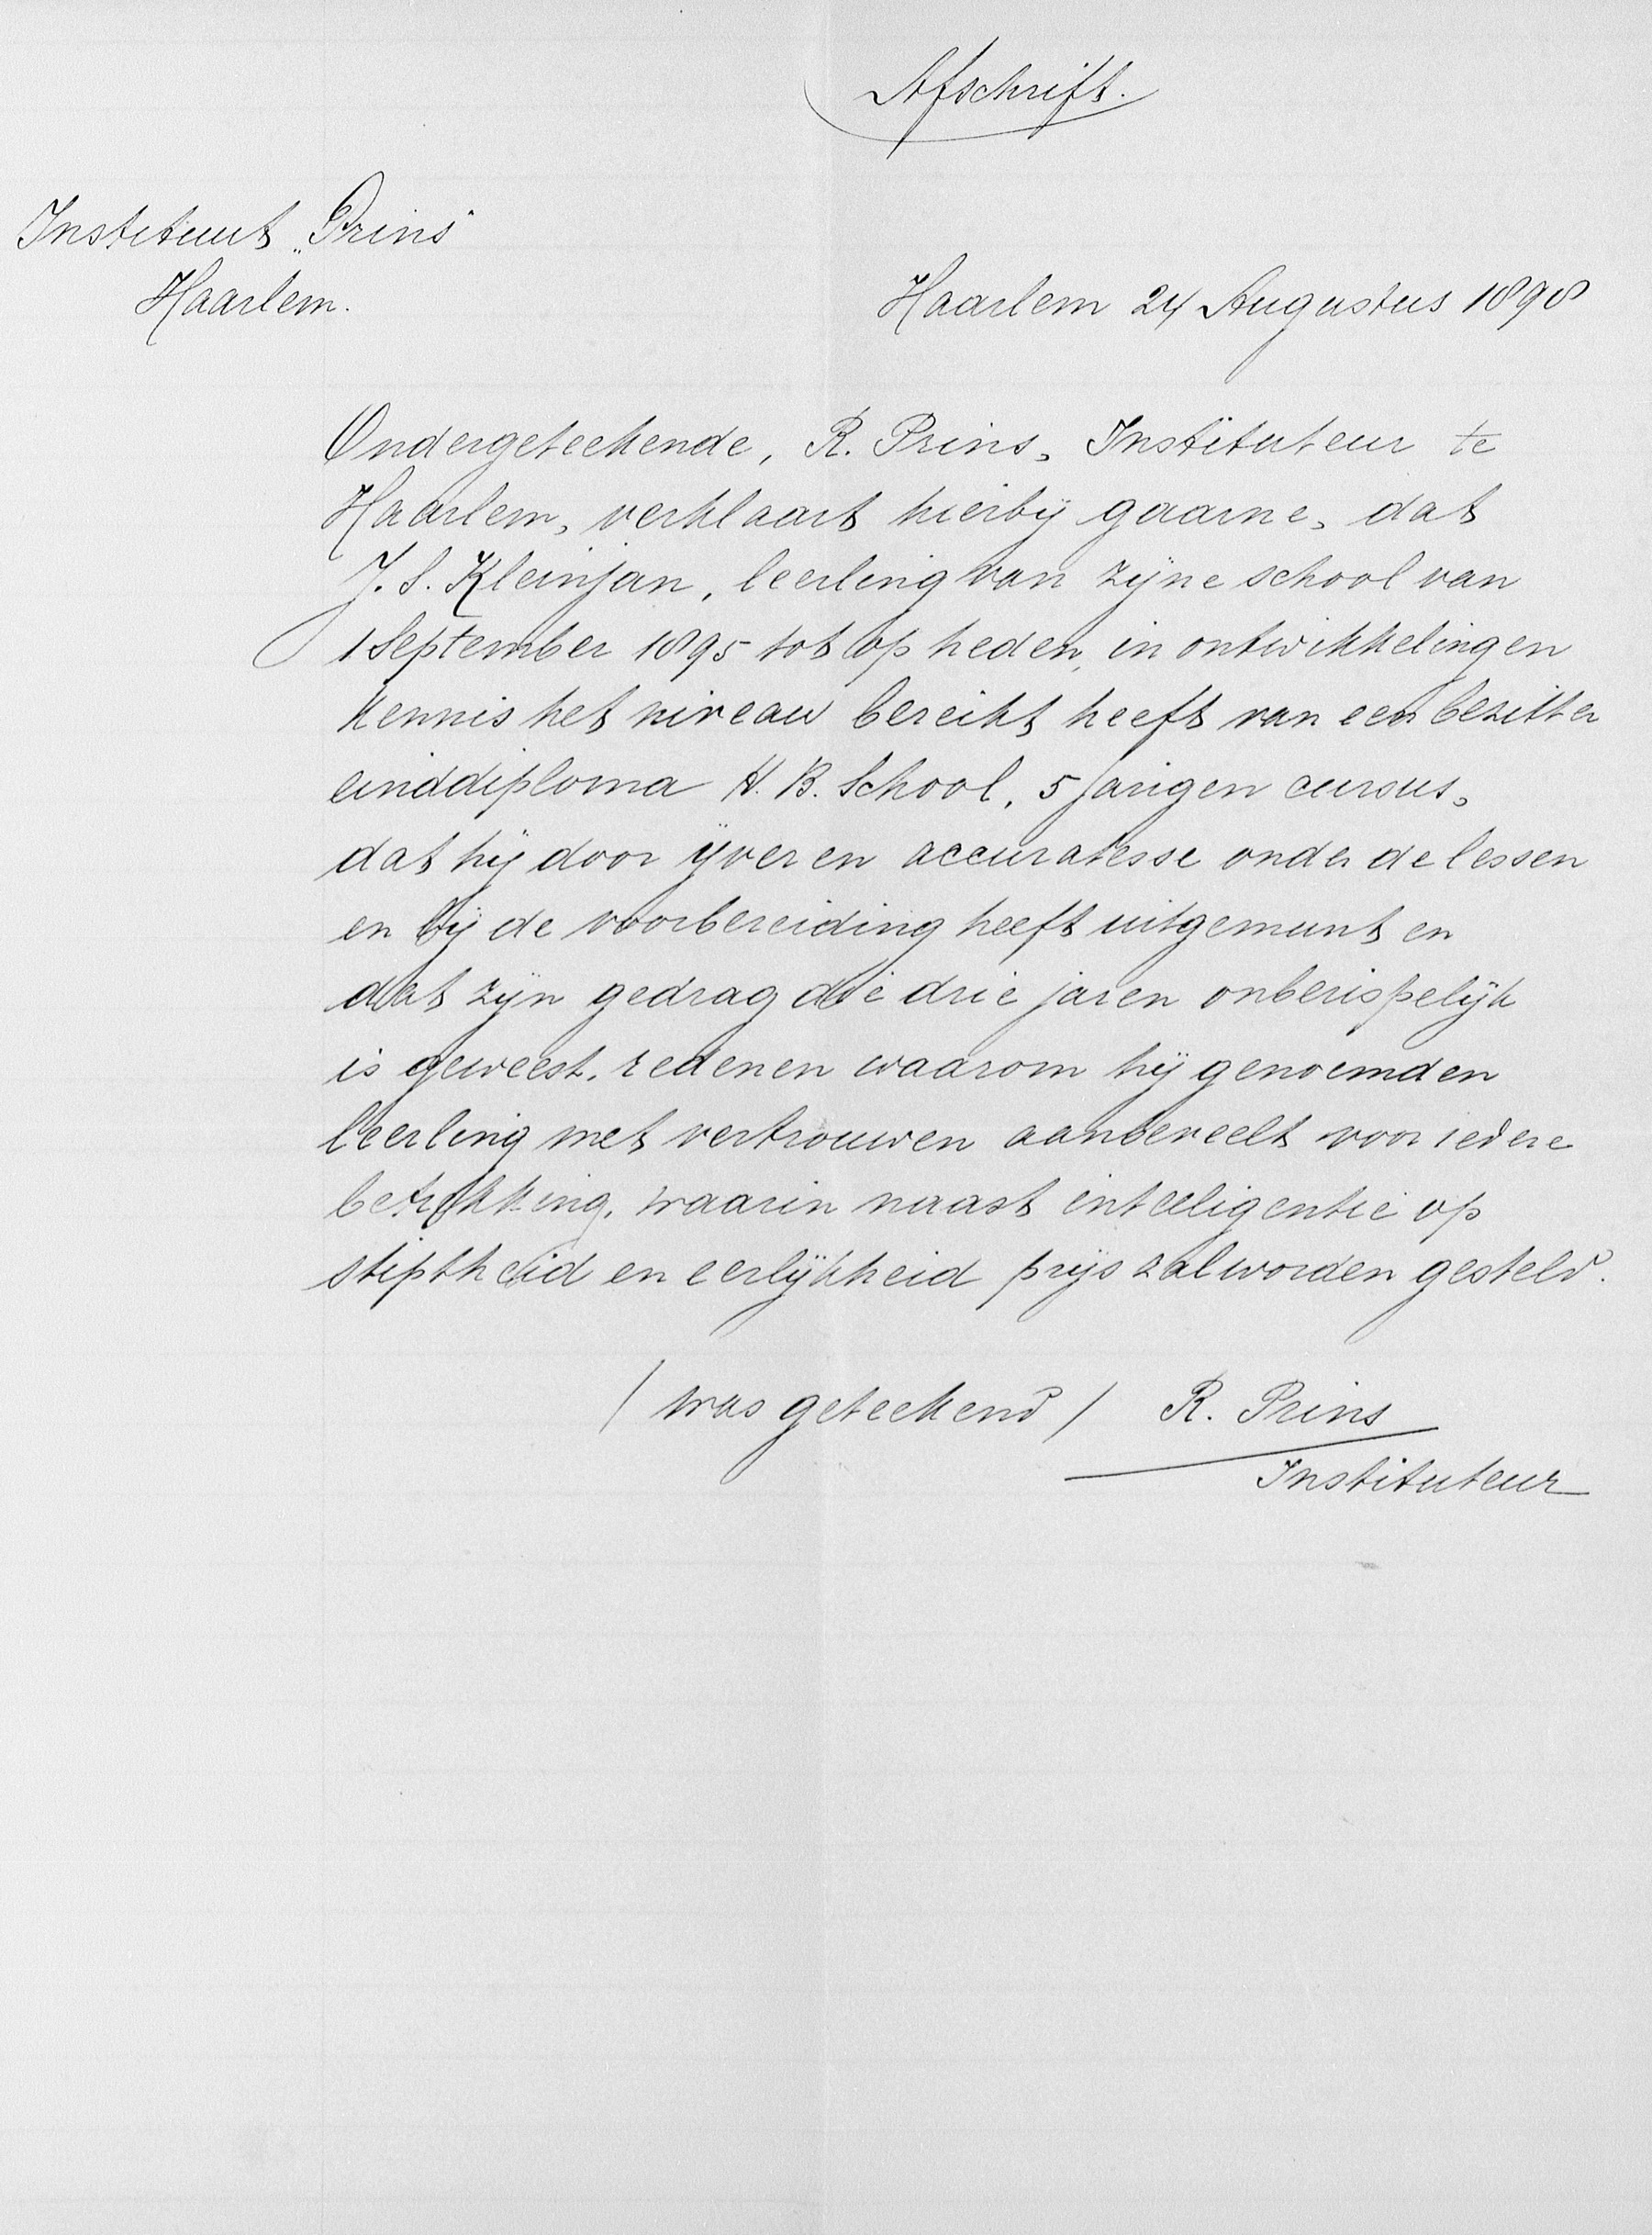 Afschrift.
Instituut „Prins"
Haarlem.
Haarlem 24 Augustus 1898
Ondergeteekende, R. Prins, Instituteur te
Haarlem, verklaart hierbij gaarne, dat
J. S. Kleinjan, leerling van zijne school van
1 September 1895 tot op heden, in ontwikkeling en
kennis het niveau bereikt heeft van een bezitter
einddiploma H. B. School, 5 jarigen cursus,
dat hij door ijver en accuratesse onder de lessen
en bij de voorbereiding heeft uitgemunt en
dat zijn gedrag die drie jaren onberispelijk
is geweest, redenen waarom hij genoemden
leerling met vertrouwen aanbeveelt voor iedere
betrekking, waarin naast intelligentie op
stiptheid en eerlijkheid prijs zal worden gesteld.
/ was geteekend / R. Prins
Instituteur